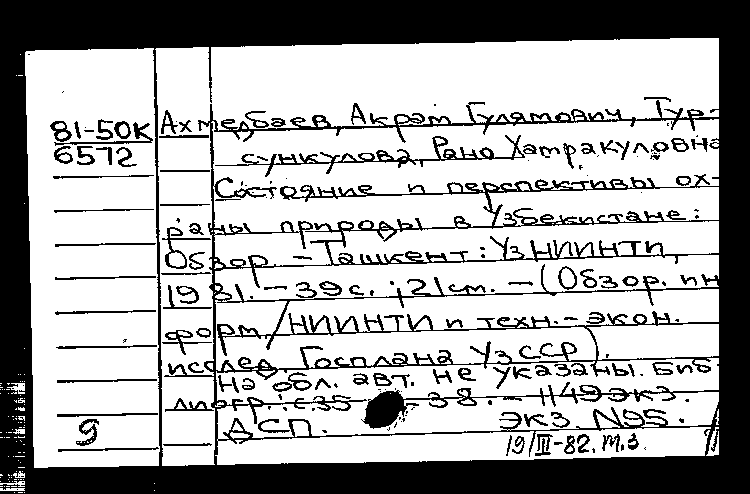 81-50К
6572
Ахмедбаев, Акрам Гулямович, Тур-
сункулова, Рано Хатракуловна
Состояние и перспективы ох-
раны природы в Узбекистане:
Обзор. - Ташкент: УзНИИНТИ,
1981. - 39 с.; 21 см. - (Обзор. ин
форм./НИИНТИ и техн.-экон.
исслед. Госплана УзССР).
На обл. авт. не указаны. Биб-
лиогр.: с. 35-38. - 1149экз.
ДСП. экз. N95.
9
19/III-82. м.з.